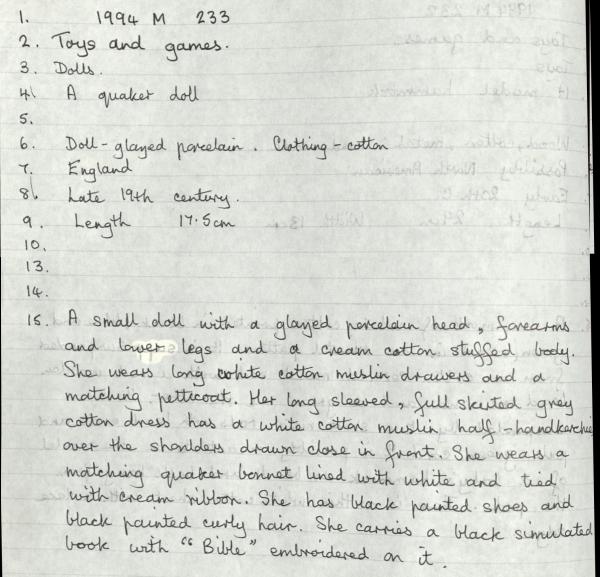 1. 1994 M 233
2. Toys and games.
3. Dolls.
4. A quaker doll
5.
6. Doll - glazed porcelain. Clothing - cotton
7. England
8. Late 19th century.
9. Length 17.5cm
10.
13.
14.
15. A small doll with a glazed porcelain head, forearms
and lower legs and a cream cotton stuffed body.
She wears long white cotton muslin drawers and a
matching petticoat. Her long sleeved, full skirted grey
cotton dress has a white cotton muslin half-handkerchie
over the shoulders drawn close in front. She wears a
matching quaker bonnet lined with white and tied
with cream ribbon. She has black painted shoes and
black painted curly hair. She carries a black simulated
book with "Bible" embroidered on it.